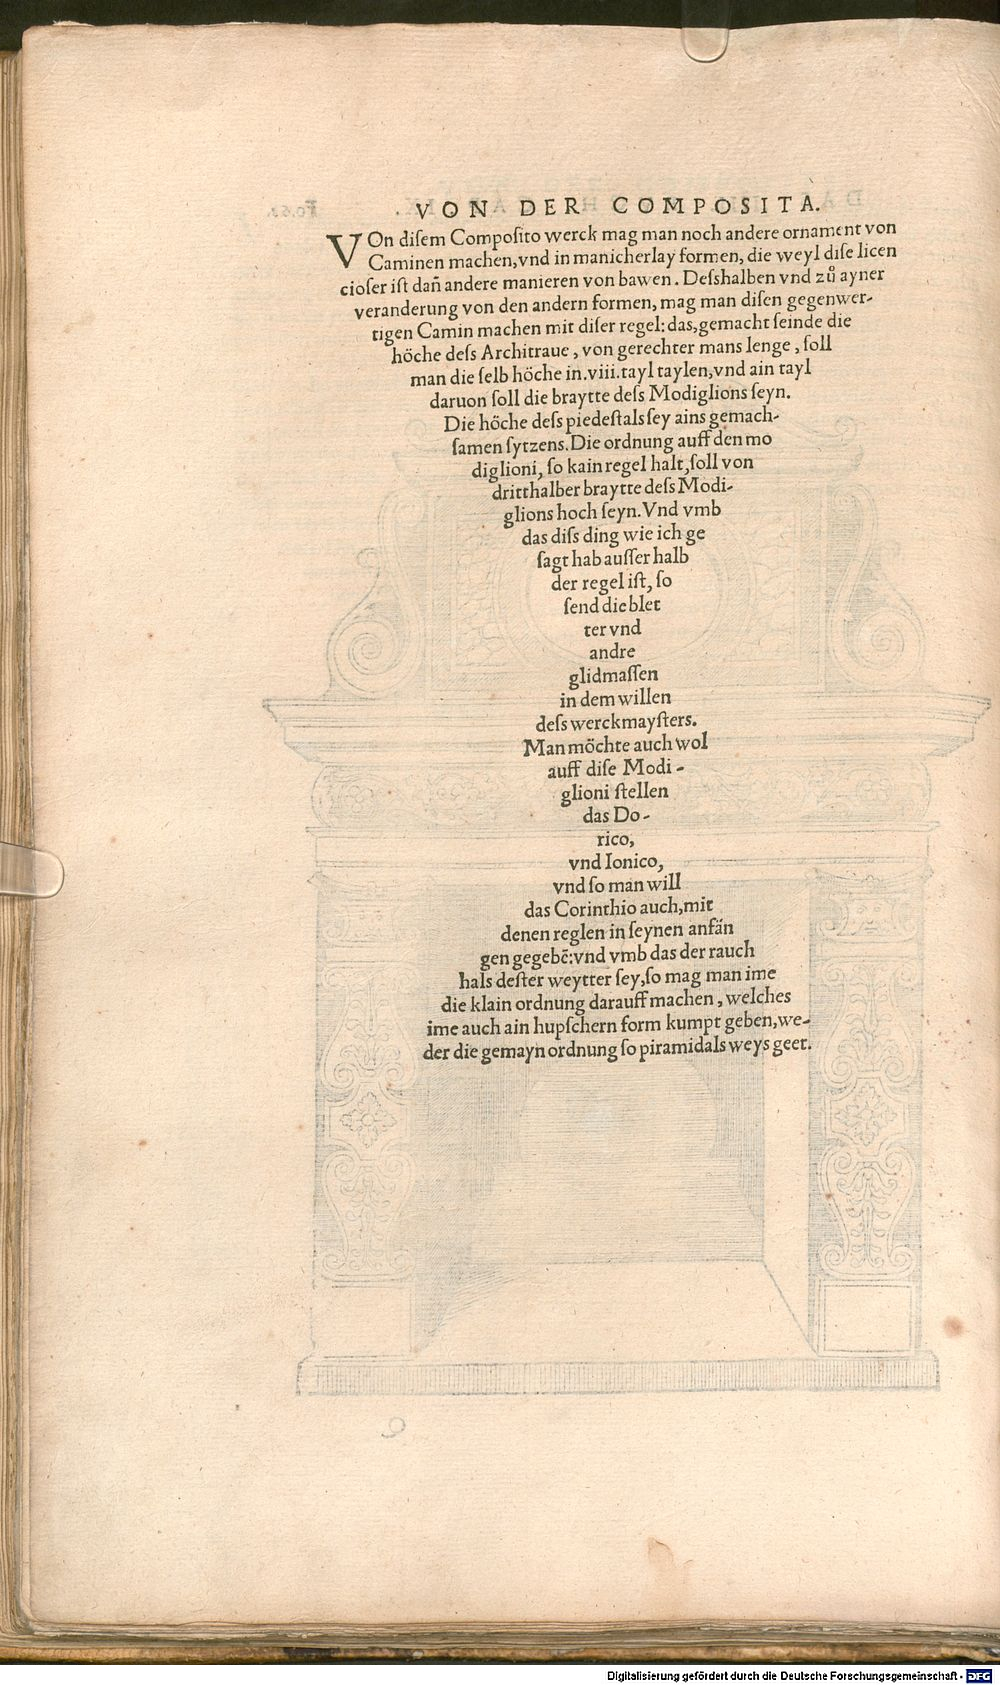 VON DER COMPOSITA.
VOn disem Composito werck mag man noch andere ornament von
Caminen machen, vnd in manicherlay formen, die weyl dise licen
cioser ist dañ andere manieren von bawen. Desshalben vnd zů ayner
veranderung von den andern formen, mag man disen gegenwer-
tigen Camin machen mit diser regel: das, gemacht seinde die
höche dess Architraue, von gerechter mans lenge, soll
man die selb höche in .viii. tayl taylen, vnd ain tayl
daruon soll die braytte dess Modiglions seyn.
Die höche dess piedestals sey ains gemach-
samen sytzens. Die ordnung auff den mo
diglioni, so kain regel halt, soll von
dritthalber braytte dess Modi-
glions hoch seyn. Vnd vmb
das diss ding wie ich ge
sagt hab ausser halb
der regel ist, so
send die blet
ter vnd
andre
glidmassen
in dem willen
dess werckmaysters.
Man möchte auch wol
auff dise Modi-
glioni stellen
das Do-
rico,
vnd Ionico,
vnd so man will
das Corinthio auch, mit
denen reglen in seynen anfän
gen gegebẽ: vnd vmb das der rauch
hals dester weytter sey, so mag man ime
die klain ordnung darauff machen, welches
ime auch ain hupschern form kumpt geben, we-
der die gemayn ordnung so piramidals weys geet.
Digitalisierung gefördert durch die Deutsche Forschungsgemeinschaft - DFG